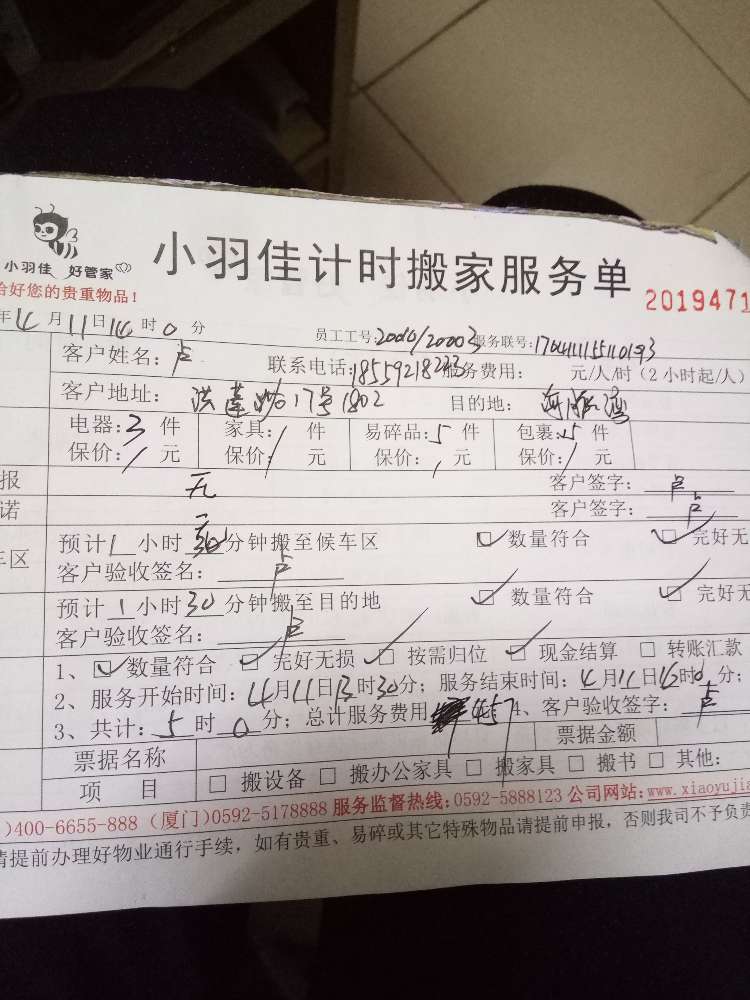 小羽佳 好管家
小羽佳计时搬家服务单
好您的贵重物品！
2019471
年4月11日14时0分 员工工号: 服务联号:
客户姓名：卢 联系电话: 服务费用： 元/人/时（2小时起/人）
客户地址： 17号1802 目的地：
电器:3件 家具:/件 易碎品:5件 包裹:15件
保价:/元 保价:/元 保价:/元 保价:/元
报 无 客户签字：卢
诺 客户签字：卢
车区 预计1小时30分钟搬至候车区 数量符合 完好无
客户验收签名：卢
预计1小时30分钟搬至目的地 数量符合 完好无
客户验收签名：卢
1、 数量符合 完好无损 按需归位 现金结算 转账汇款
2、服务开始时间：4月11日13时30分；服务结束时间：4月11日16时0分；
3、共计：5时0分；总计服务费用 457 4、客户验收签字：卢
票据名称 票据金额
项 目 搬设备 搬办公家具 搬家具 搬书 其他:
)400-6655-888 (厦门)0592-5178888 服务监督热线: 0592-5888123 公司网站: www.xiaoyujia
请提前办理好物业通行手续，如有贵重、易碎或其它特殊物品请提前申报，否则我司不予负责